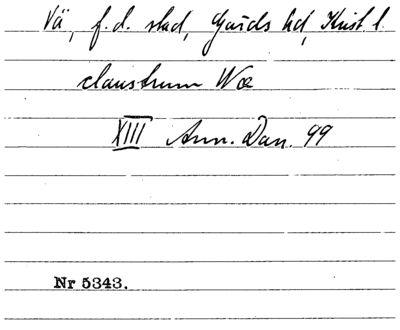 Vä, f.d. stad, Gärds hd, Krist. l.
claustrum Wæ
XIII Ann. Dan. 99
Nr 5343.